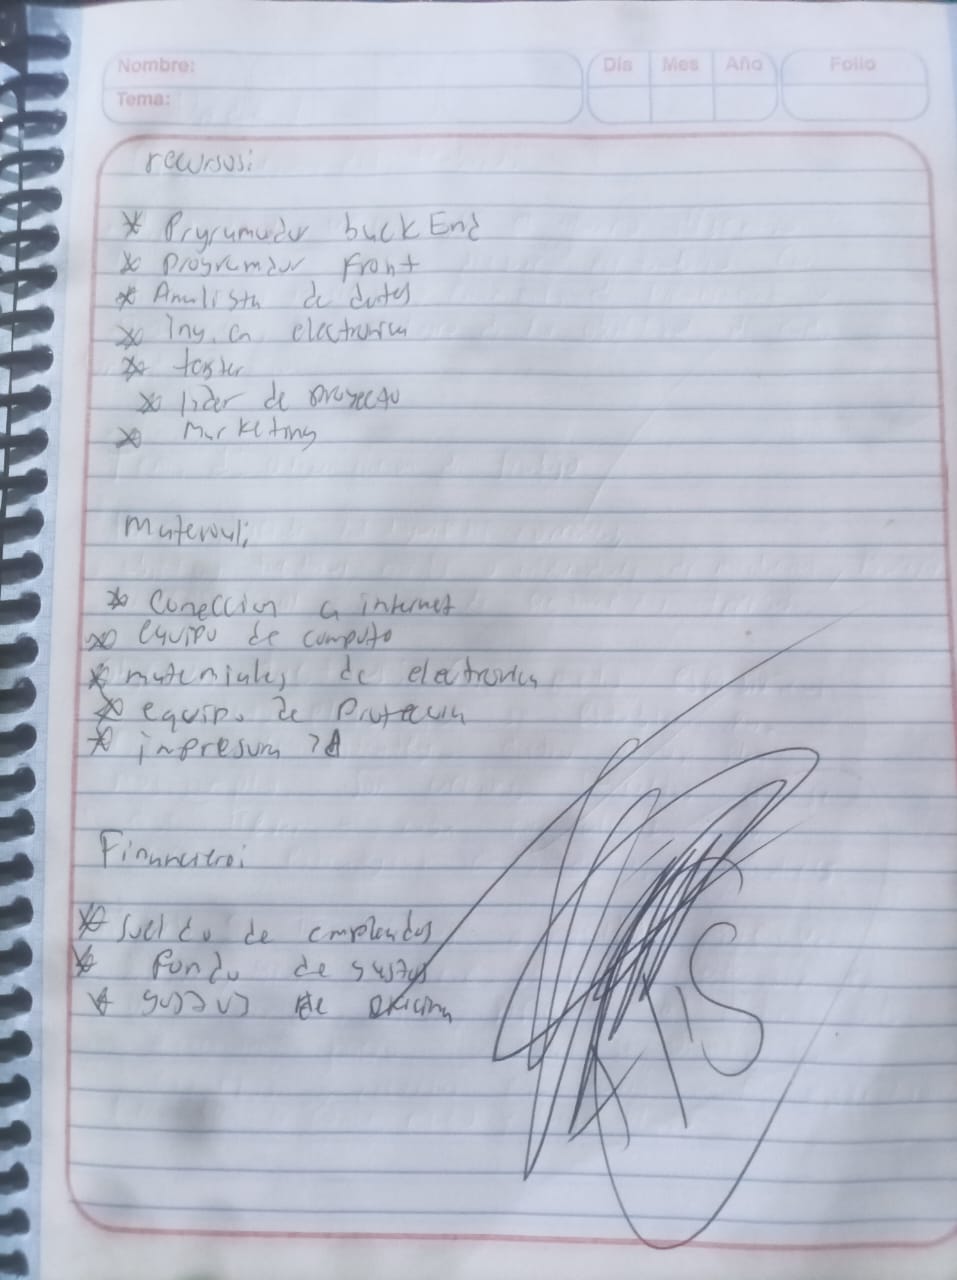 Nombre:
Día Mes Año Folio
Tema:
recursos:
* Prgramador back End
* Programador Front
* Analista de datos
* Ing. en electronica
* tester
* lider de proyecto
* Marketing
Material:
* Coneccion a internet
* equipo de computo
* materiales de electronica
* equipo de Proteccin
* impresora
Financiero:
* Sueldo de empleados
* Fondo de gastos
* gastos de oficina